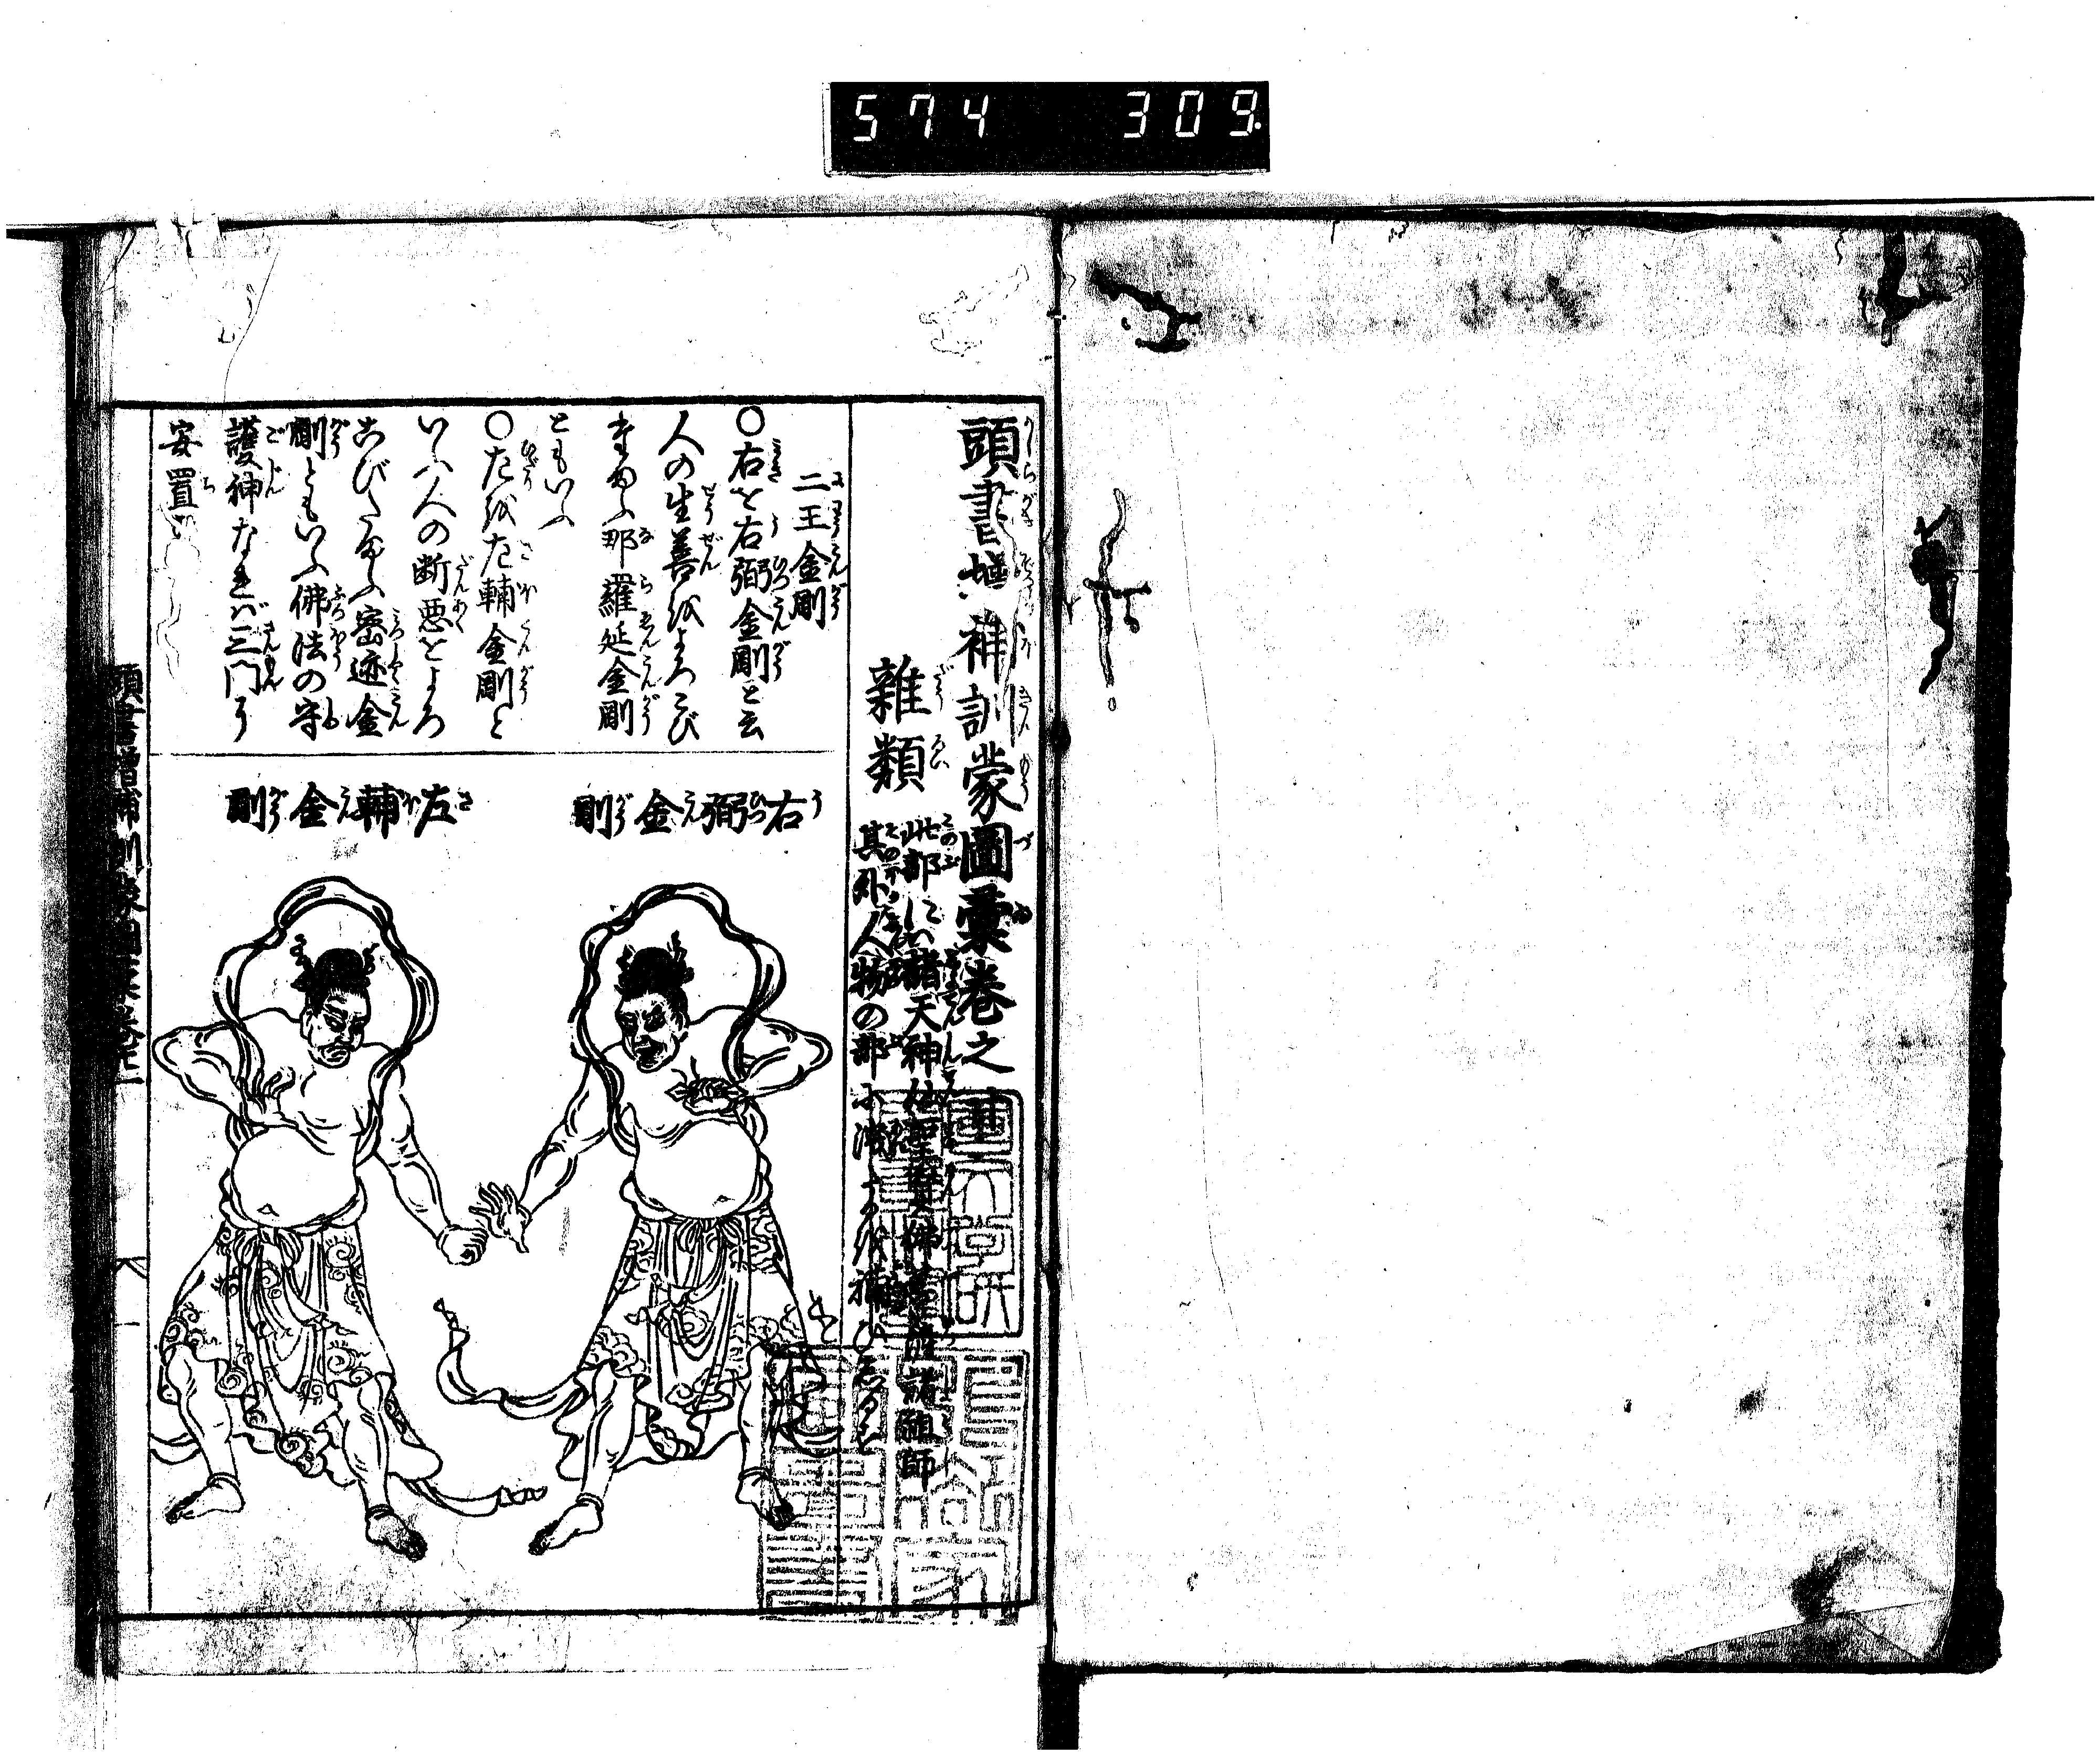 574 309
頭書増補訓蒙圖彙巻之
雜類
此部にハ諸天神仙聖賢佛菩薩諸祖師
其外人物の部に洩たるを補ひしるす
二王金剛
〇右を右弼金剛と云
人の生善をよろこび
まもふ那羅延金剛
ともいふ
〇左を左輔金剛と
いふ人の断悪をよろ
こびたまふ密迹金
剛ともいふ佛法の守
護神なれバ三門に
安置
右弼金剛
左輔金剛
頭書増補訓蒙圖彙巻